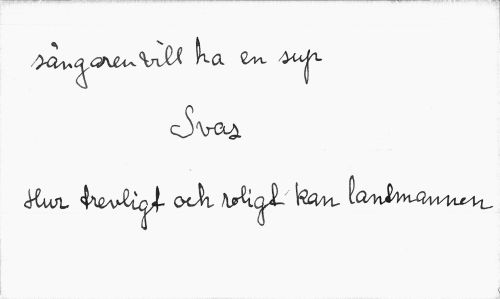 sångaren vill ha en sup
Svas
Hur trevligt och roligt kan lantmannen